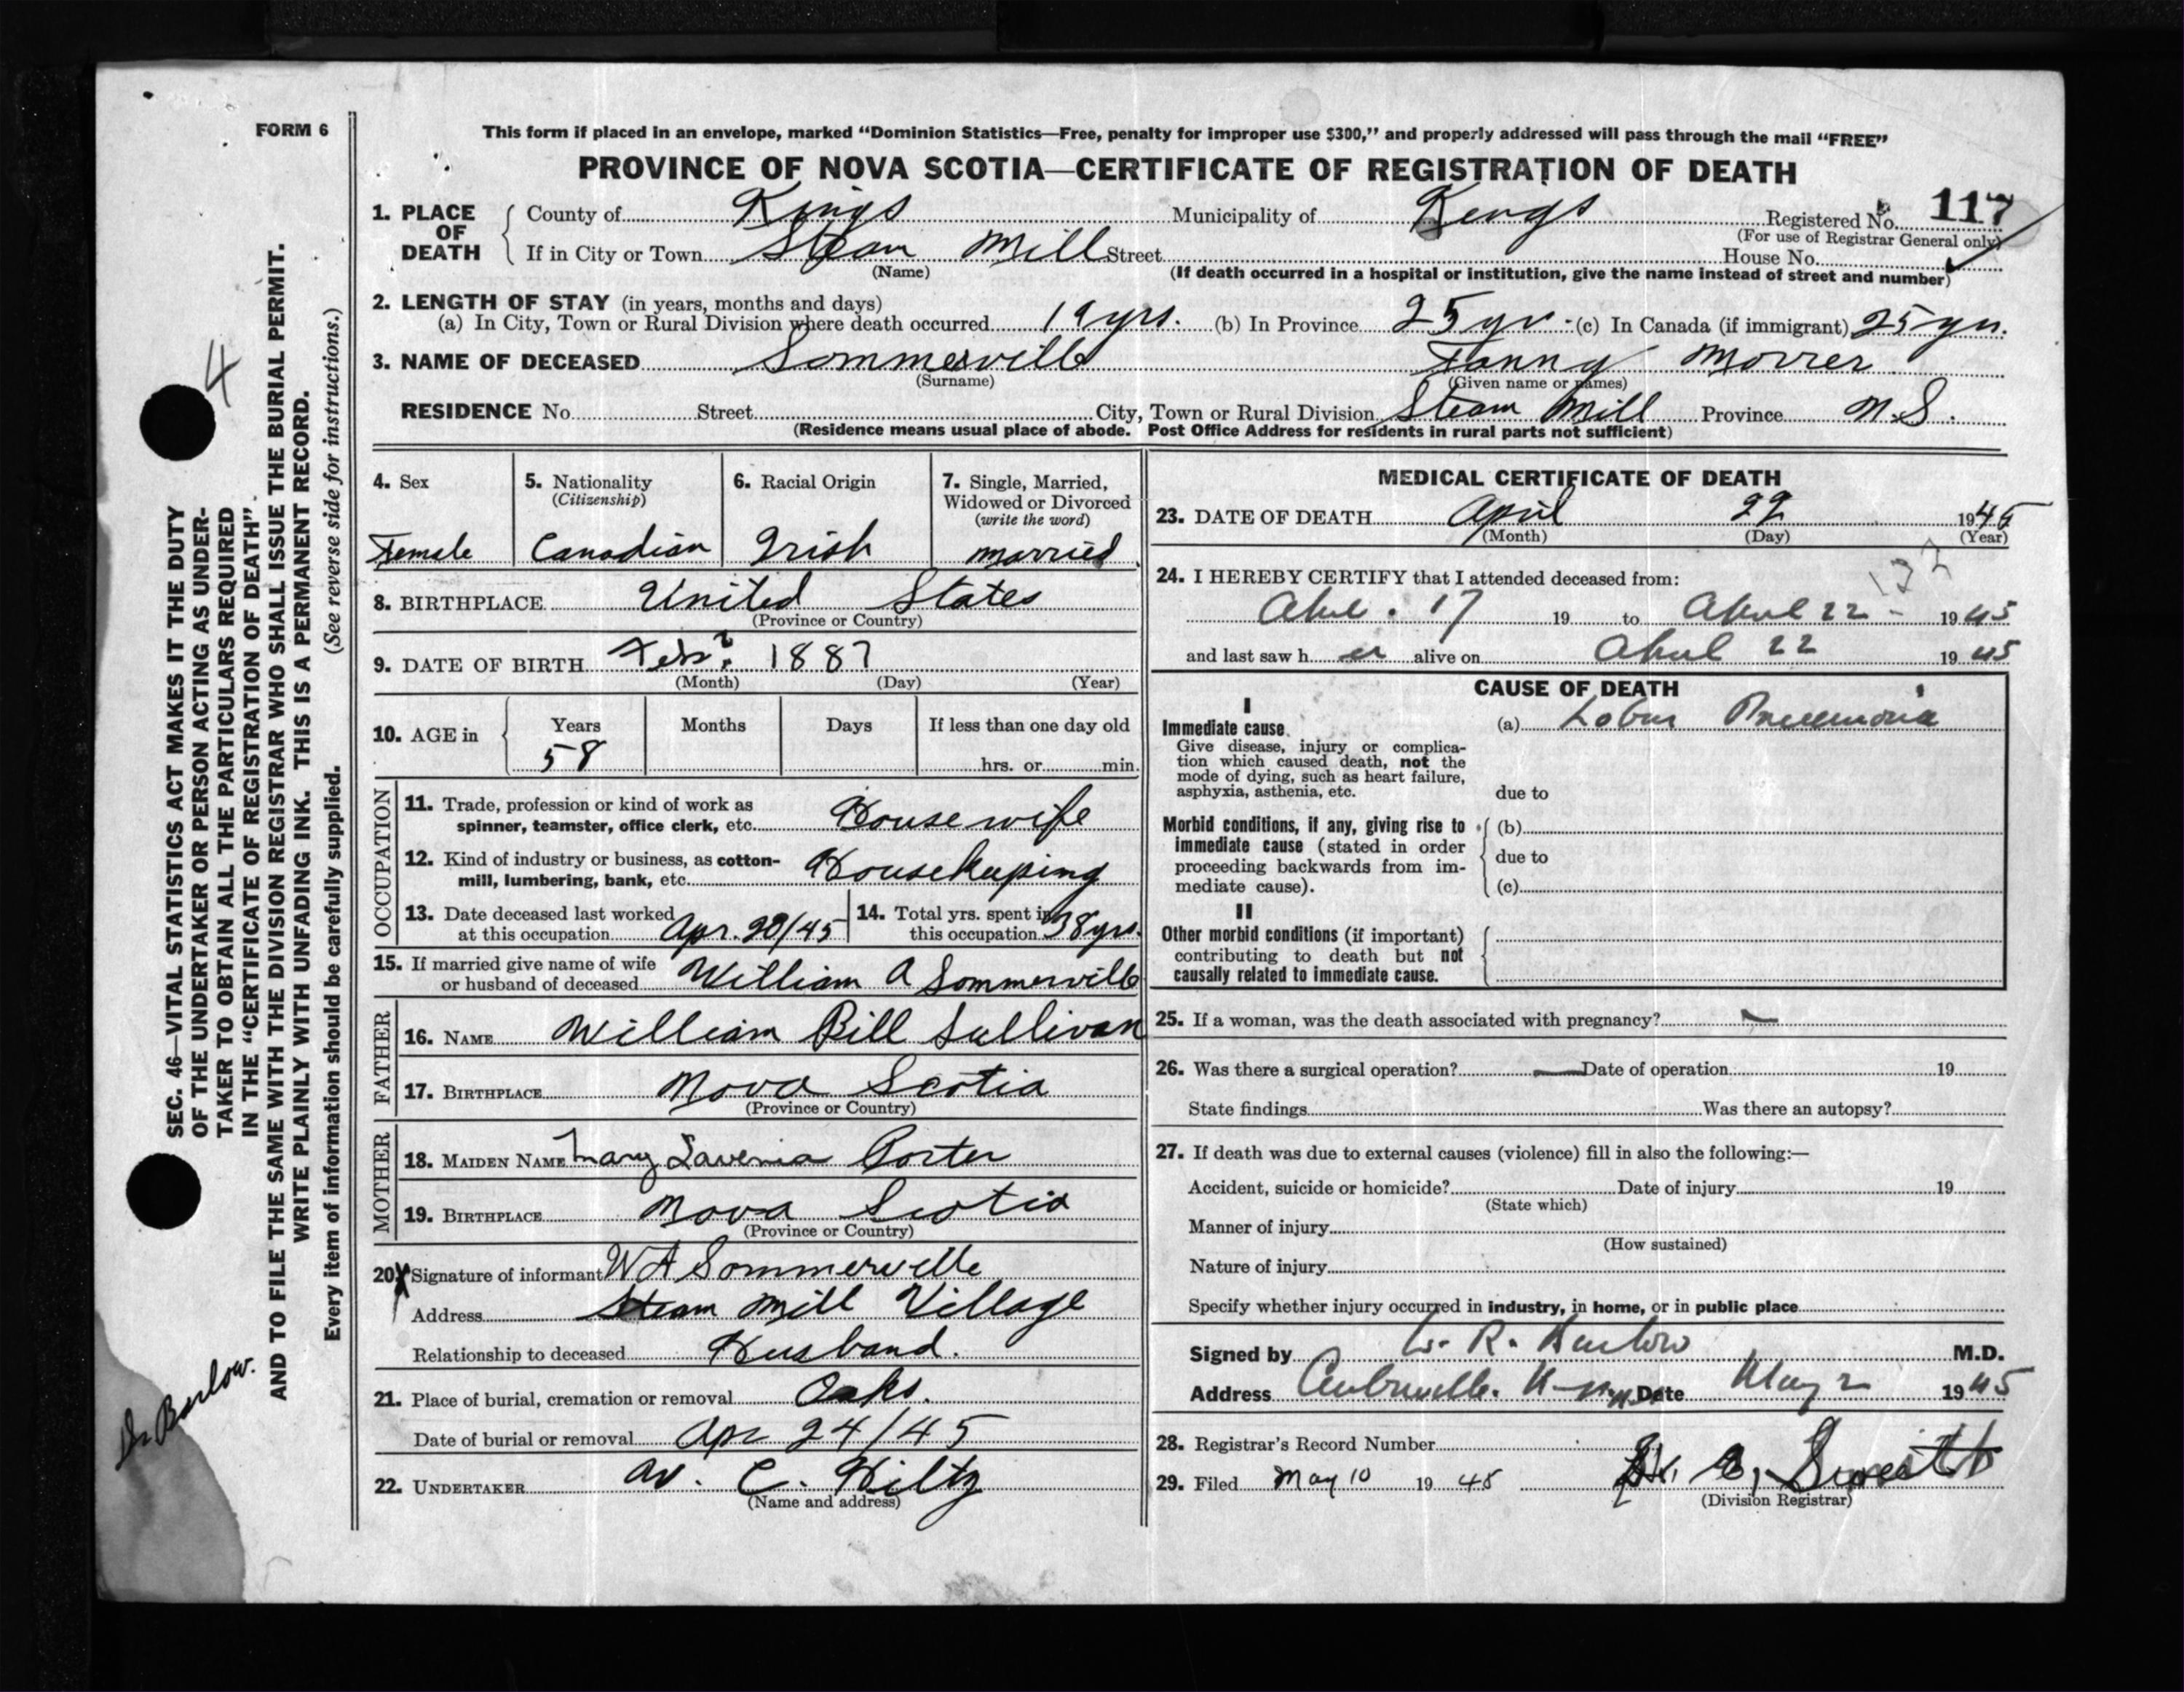 FORM 6
This form if placed in an envelope, marked “Dominion Statistics—Free, penalty for improper use $300,” and properly addressed will pass through the mail “FREE”
PROVINCE OF NOVA SCOTIA—CERTIFICATE OF REGISTRATION OF DEATH
1. PLACE OF DEATH County of Kings Municipality of Kings Registered No. 117
(For use of Registrar General only)
If in City or Town Steam Mill Street House No.
(Name) (If death occurred in a hospital or institution, give the name instead of street and number)
2. LENGTH OF STAY (in years, months and days)
(a) In City, Town or Rural Division where death occurred 19 yrs. (b) In Province 25 yr. (c) In Canada (if immigrant) 25 yrs.
3. NAME OF DECEASED Sommerville Fanny
(Surname) (Given name or names)
RESIDENCE No. Street City, Town or Rural Division Steam Mill Province N.S.
(Residence means usual place of abode. Post Office Address for residents in rural parts not sufficient)
4. Sex 5. Nationality (Citizenship) 6. Racial Origin 7. Single, Married, Widowed or Divorced (write the word)
Female Canadian Irish Married
8. BIRTHPLACE United States
(Province or Country)
9. DATE OF BIRTH Feb. 2 1887
(Month) (Day) (Year)
10. AGE in Years Months Days If less than one day old
58 hrs. or min.
OCCUPATION
11. Trade, profession or kind of work as spinner, teamster, office clerk, etc. Housewife
12. Kind of industry or business, as cotton-mill, lumbering, bank, etc. Housekeeping
13. Date deceased last worked at this occupation Apr. 20/45 14. Total yrs. spent in this occupation 38 yrs.
15. If married give name of wife or husband of deceased William A Sommerville
FATHER
16. NAME William Bill Sullivan
17. BIRTHPLACE Nova Scotia
(Province or Country)
MOTHER
18. MAIDEN NAME Mary Lavenia Porter
19. BIRTHPLACE Nova Scotia
(Province or Country)
20. X Signature of informant W A Sommerville
Address Steam Mill Village
Relationship to deceased Husband.
21. Place of burial, cremation or removal Oaks.
Date of burial or removal Apr 24/45
22. UNDERTAKER C. Hiltz
(Name and address)
MEDICAL CERTIFICATE OF DEATH
23. DATE OF DEATH April 22 1945
(Month) (Day) (Year)
24. I HEREBY CERTIFY that I attended deceased from:
April 17 19 to April 22 - 1945
and last saw her alive on April 22 1945
CAUSE OF DEATH
I
Immediate cause. (a) Lobar Pneumonia
Give disease, injury or complication which caused death, not the mode of dying, such as heart failure, asphyxia, asthenia, etc.
due to
Morbid conditions, if any, giving rise to immediate cause (stated in order proceeding backwards from immediate cause).
(b)
due to
(c)
II
Other morbid conditions (if important) contributing to death but not causally related to immediate cause.
25. If a woman, was the death associated with pregnancy? —
26. Was there a surgical operation? — Date of operation 19
State findings Was there an autopsy?
27. If death was due to external causes (violence) fill in also the following:—
Accident, suicide or homicide? Date of injury 19
(State which)
Manner of injury
(How sustained)
Nature of injury
Specify whether injury occurred in industry, in home, or in public place
Signed by R. Barlow M.D.
Address Centreville. Date May 2 1945
28. Registrar's Record Number
29. Filed May 10 1945
(Division Registrar)
SEC. 46—VITAL STATISTICS ACT MAKES IT THE DUTY
OF THE UNDERTAKER OR PERSON ACTING AS UNDER-
TAKER TO OBTAIN ALL THE PARTICULARS REQUIRED
IN THE “CERTIFICATE OF REGISTRATION OF DEATH”.
AND TO FILE THE SAME WITH THE DIVISION REGISTRAR WHO SHALL ISSUE THE BURIAL PERMIT.
WRITE PLAINLY WITH UNFADING INK. THIS IS A PERMANENT RECORD.
Every item of information should be carefully supplied. (See reverse side for instructions.)
4
Dr Barlow.